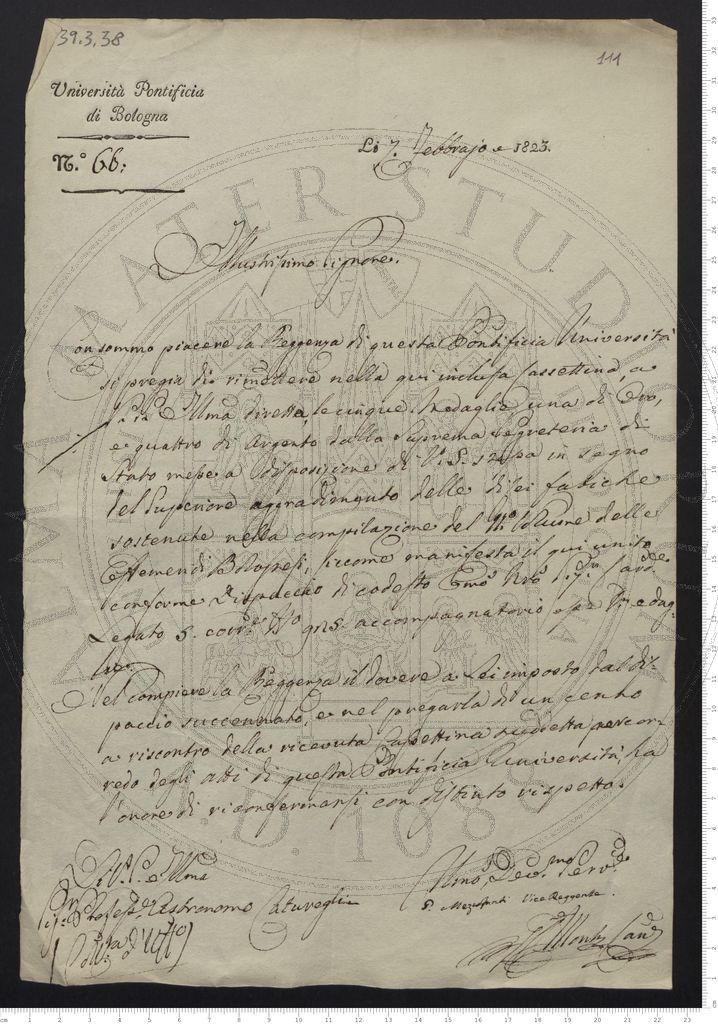 39.3.38
111
Università Pontificia
di Bologna
N.° 66;
Li 7. Febbrajo 1823.
Illustrissimo Signore.
Con sommo piacere la Reggenza di questa Pontificia Università
si pregia di rimettere nella qui inclusa Cassettina, a
Illma diretta, le cinque Medaglie una di Oro,
e quattro di Argento dalla Suprema Segreteria di
Stato messe a disposizione di V. S. in segno
del Superiore aggradimento delle di Lei fatiche
sostenute nella compilazione del Volume delle
Effemeridi Bolognesi, siccome manifesta il qui unito
conforme Dispaccio di codesto Emo Rmo Sigr. Card.e
Legato 5. corr.e N° accompagnatorio
Nel compiere la Reggenza il dovere a Lei imposto dal di-
spaccio succennato, e nel pregarla di un cenno
a riscontro della ricevuta Cassettina suddetta, per cor-
redo degli atti di questa Pontificia Università, ha
l'onore di riconfermarsi con distinto rispetto.
Di V. S. Illma
Sigr. Profess.e Astronomo Caturegli
Umo Devmo Servde
P. Mezzofanti Vice Reggente.